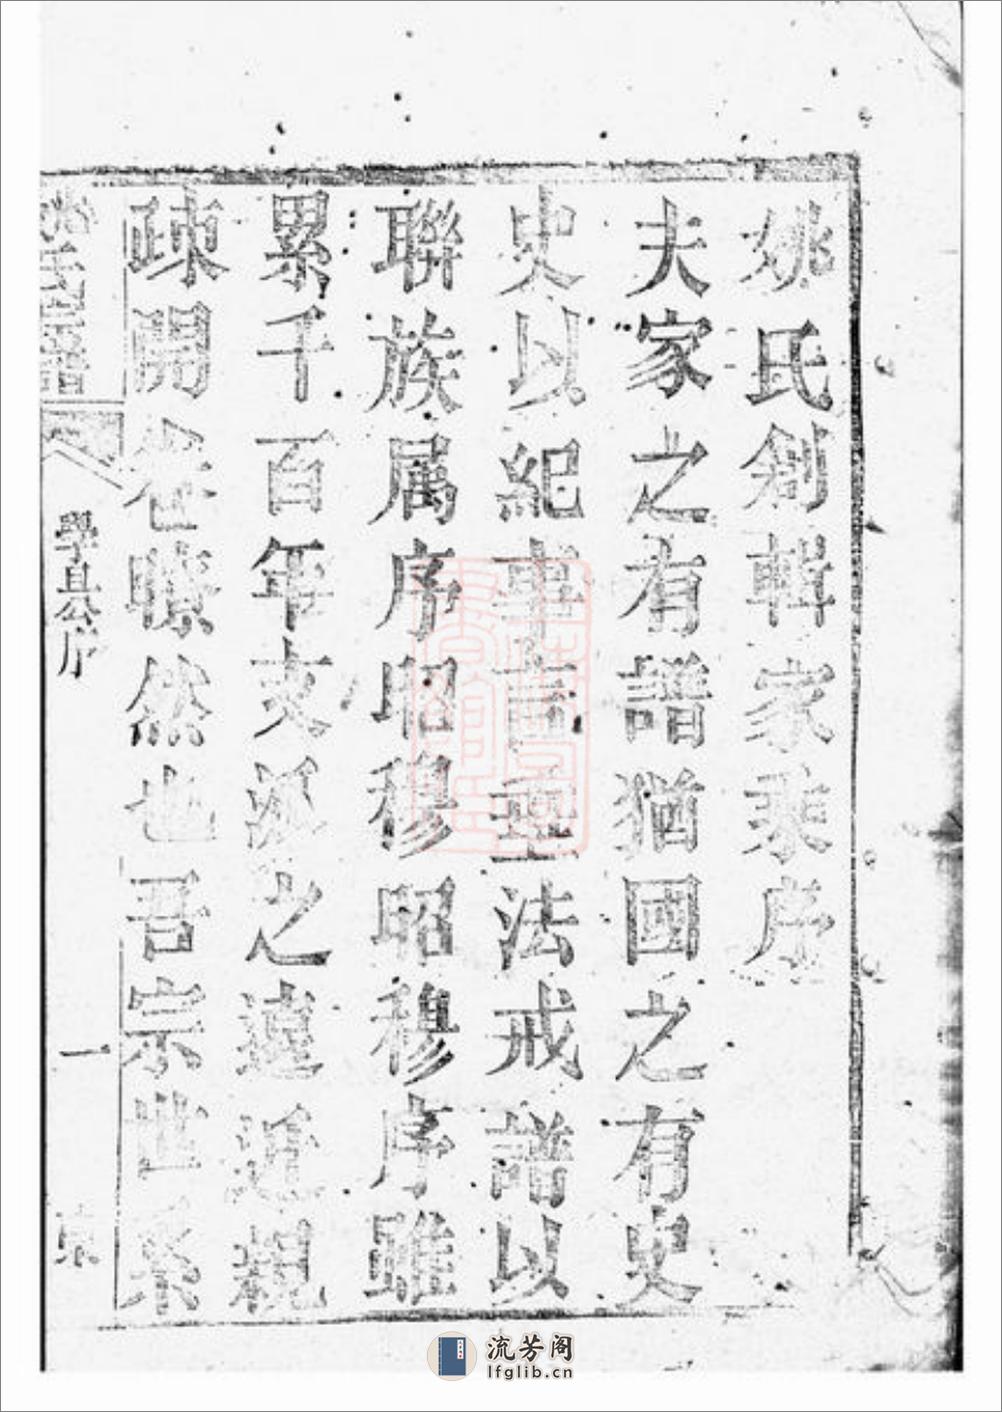 姚氏創輯家乘序
夫家之有譜猶國之有史
史以紀事直垂法戒譜以
聯族属序昭穆昭穆序雖
累千百年支派之遠近親
疎開卷瞭然也吾宗世系
姚氏家譜
學具公序
一
流芳阁
lfglib.cn